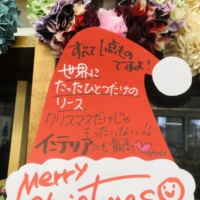 すべて1点もの
ですよ!
世界に
たったひとつだけの
リース
クリスマスだけじゃ
もったいない
インテリアにも最高
Merry
Christmas